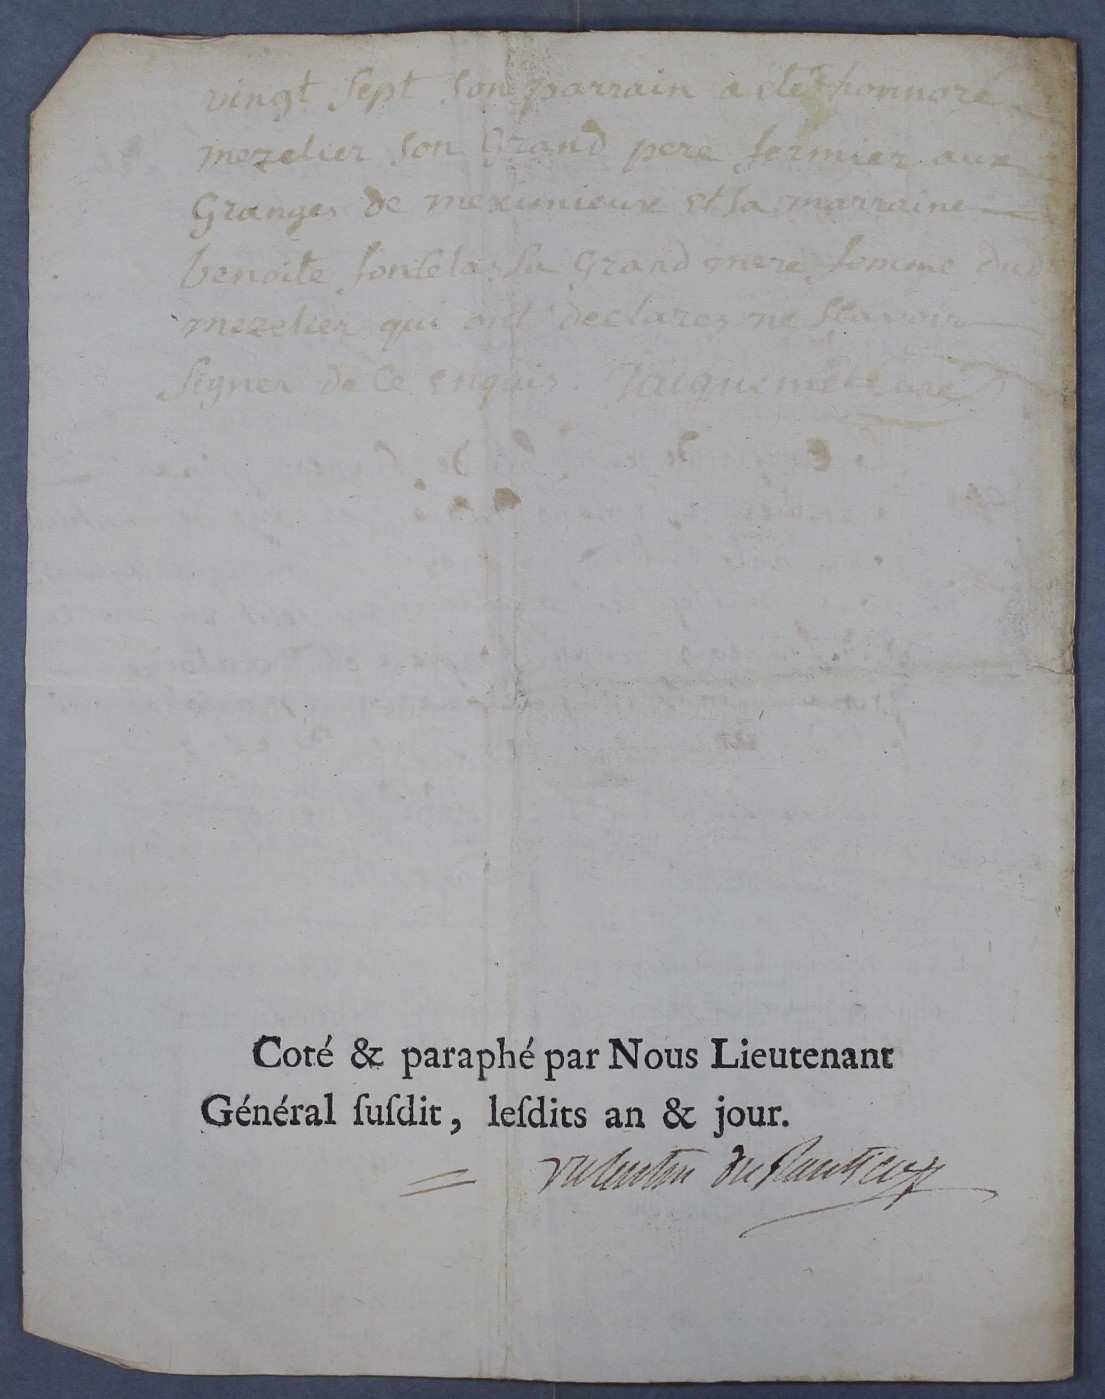 vingt sept son parrain a ete honnoré
mezelier son Grand pere fermier aux
Granges de meximieux et la marraine
benoite fontela sa Grand mere femme dud
mezelier qui ont declarez ne scavoir
signer de ce enquis. Juquemet curé
Coté & paraphé par Nous Lieutenant
Général ſuſdit, leſdits an & jour.
Valentin du Plantier